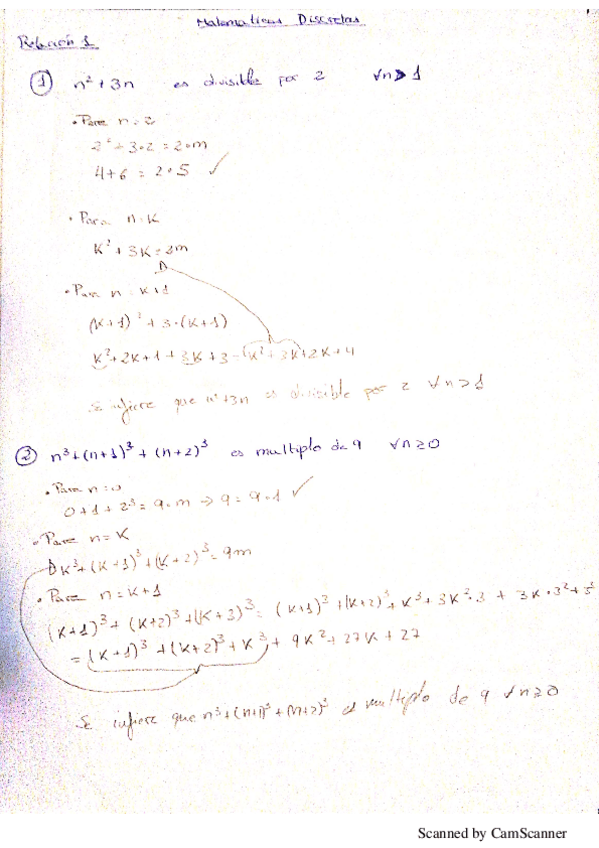 Matematicas Discretas
Relación 1
① n² + 3n es divisible por 2 ∀n > 1
• Para n = 2
2² + 3·2 = 2·m
4 + 6 = 2·5 ✓
• Para n = K
K² + 3K = 2m
• Para n = K+1
(K+1)² + 3·(K+1)
K² + 2K + 1 + 3K + 3 = (K² + 3K) + 2K + 4
Se infiere que n² + 3n es divisible por 2 ∀n > 1
② n³ + (n+1)³ + (n+2)³ es multiplo de 9 ∀n ≥ 0
• Para n = 0
0 + 1 + 2³ = 9·m → 9 = 9·1 ✓
• Para n = K
K³ + (K+1)³ + (K+2)³ = 9m
• Para n = K+1
(K+1)³ + (K+2)³ + (K+3)³ = (K+1)³ + (K+2)³ + K³ + 3K²·3 + 3K·3² + 3³
= (K+1)³ + (K+2)³ + K³ + 9K² + 27K + 27
Se infiere que n³ + (n+1)³ + (n+2)³ es multiplo de 9 ∀n ≥ 0
Scanned by CamScanner